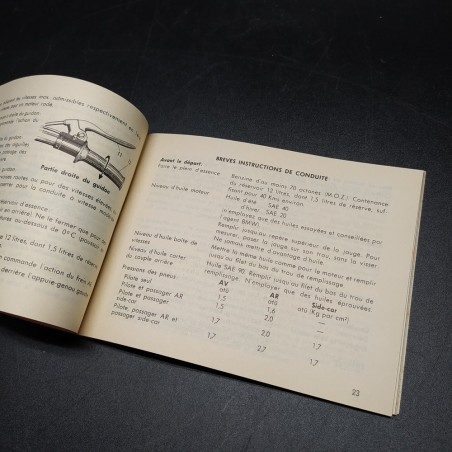 mps. admissibles respectivement au
pour un moteur rodé.
N
Partie droite du guidon
routes ou pour des vitesses élevées
pour la conduite à vitesse modérée
d'essence
en arrière). Ne le fermer que pour
au-dessous de 0° C (position
12 litres, dont 1,5 litres de réserve
commande l'action du frein
derrière l'appuie-genou gauche
BREVES INSTRUCTIONS DE CONDUITE
Avant le départ:
Faire le plein d'essence
Benzine d'au moins 70 octanes (M.O.Z.) Contenance
du réservoir 12 litres, dont 1,5 litres de réserve, suf-
fisant pour 40 Kms environ.
Niveau d'huile moteur
Huile d'été SAE 40
d'hiver SAE 20
(n'employez que des huiles essayées et conseillées par
l'agent BMW).
Remplir jusqu'au repère supérieur de la jauge. Pour
mesurer, poser la jauge sur son trou, sans la visser
Ne jamais mettre d'avantage d'huile.
Niveau d'huile boîte de
vitesses
La même huile comme pour le moteur et remplir
jusqu'au filet du bas du trou de remplissage.
Niveau d'huile carter
du couple arrière
Huile SAE 90. Remplir jusqu'au filet du bas du trou de
remplissage. N'employer que des huiles éprouvées.
Pressions des pneus: AV AR Side-car
atü atü atü (Kg par cm²)
Pilote seul 1,5 1,6 —
Pilote et passager AR 1,5 2,0 —
Pilote et passager
side-car 1,7 2,0 1,7
Pilote, passager AR et
passager, side-car 1,7 2,7 1,7
23